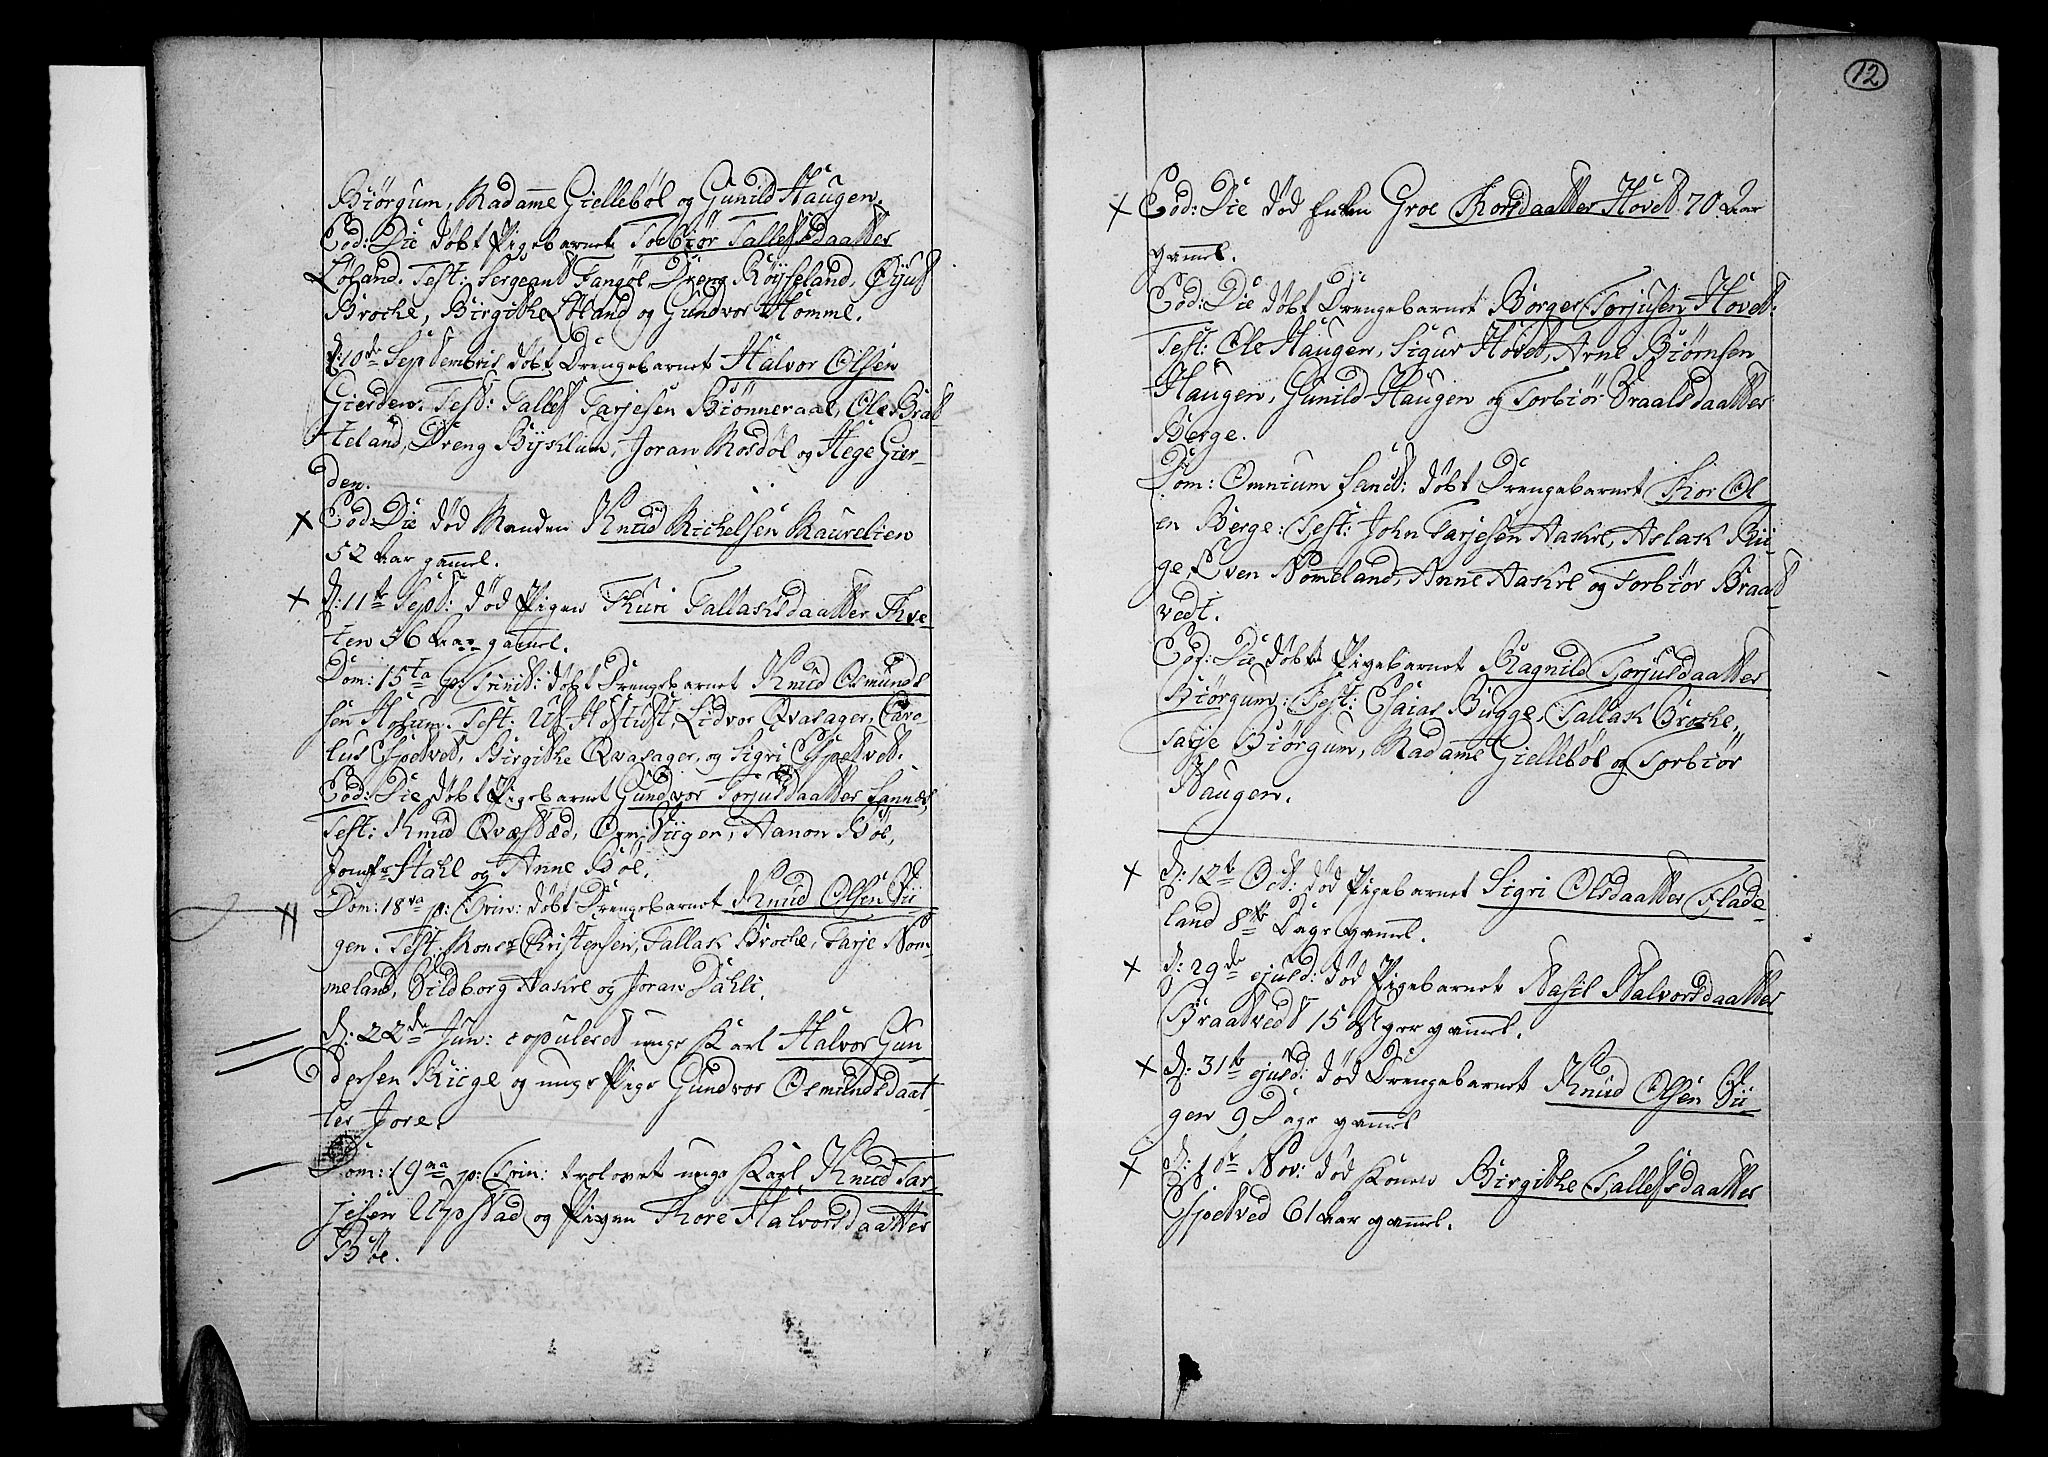 Biørgum, Madame Giellebøl og Gunild Haugen.
Eod: Die døbt Pigebarnet Torbiør Tallefsdaatter
Løland. Test: Sergeant Fangøl Dreng Røysseland, Øyus
Broche, Birgithe Løland og Gundvor Homme.
d: 10de Septembris døbt Drengebarnet Halvor Olsen
Gierden. Test: Tallef Tarjesen Biønneraae, Ole Brat
teland, Dreng Bÿklum, Joran Mosdøl og Hege Gier-
den.
Eod: Die død Manden Knud Michelsen Maurelien
52 Aar gamel.
d: 11te Sept: død Pigen Thuri Tallaksdaatter Tve-
ten 56 Aar gamel.
Dom: 15ta p: Trinit: døbt Drengebarnet Knud Osmunds
sen Hosum. Test: Ulf Lidvor Qvasager, Caro-
lus Espetvedt, Birgithe Qvasager, og Sigri Espetvedt.
Eod: Die døbt Pigebarnet Gundvor Torjusdaatter Sannes,
Test: Knud Qvæstæd, Orm Viigen, Aanon Bøe,
Jomfr Stahl og Anne Bøe.
Dom: 18va p: Trin: døbt Drengebarnet Knud Olsen Vii
gen. Test: Monsr Christensen, Tallak Broche, Tarje Nom-
meland, Sildborg Aakre og Joran Dahli.
d: 22de Jun: copuleret unge Karl Halvor Gun
dersen Riige og unge Pige Gundvor Osmundsdaat-
ter Jore.
Dom: 19na p: Trin: trolovet unge Karl Knud Tar
jesen Upstad og Pigen Thore Halvorsdaatter
Bøe.
12
Eod: Die død Enken Groe Thorsdaatter Hovet 70 Aar
gamel.
Eod: Die døbt Drengebarnet Borger Torjusen Hovet:
Test: Ole Haugen, Sigur Hovet, Arne Biørnsen
Haugen, Gunild Haugen og Torbiør Draalsdaatter
Berge.
Dom: Omnium Sanct: døbt Drengebarnet Thor Ol
en Berge: Test: John Tarjesen Aakre, Aslak Rii-
ge, Even Nomeland, Anne Aakre og Torbiør Braat-
vedt.
Eod: Die døbt Pigebarnet Ragnild Torjusdaatter
Biørgum: Test: Esaias Bugge, Tallak Broche,
Tarje Biørgum, Madame Giellebøl og Torbiør
Haugen.
d: 12te Oct: død Pigebarnet Sigri Olsdaatter Flade-
land 8te Dage gamel.
d: 29de ejusd: død Pigebarnet Aasil Halvorsdaatter
Braatvedt 15 Uger gamel.
d: 31te ejusd: død Drengebarnet Knud Olsen Vii
gen 9 Dage gamel
d: 1ste Nov: død Konen Birgithe Tallefsdaatter
Espetved 61 aar gamel.